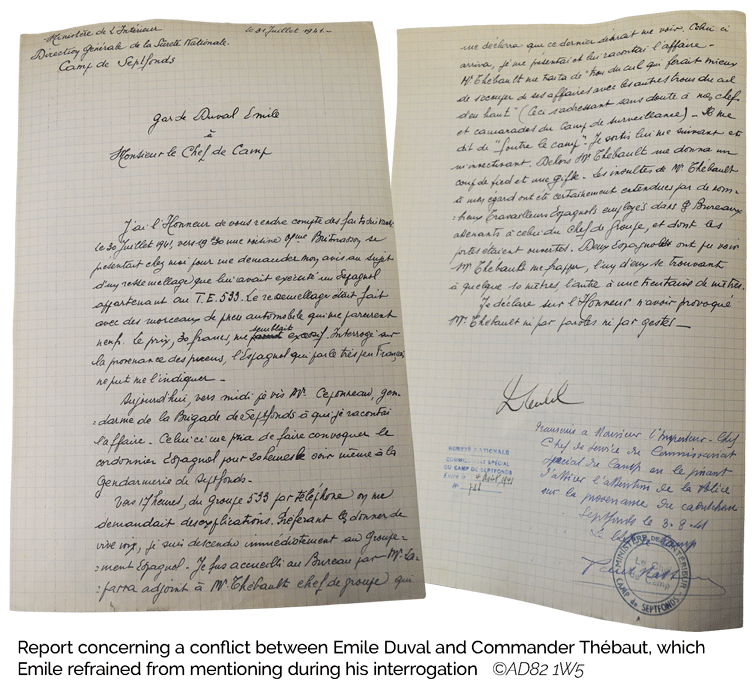 Ministère de l'Intérieur
le 31 Juillet 1941-
Direction Générale de la Sûreté Nationale.
Camp de Septfonds
Garde Duval Emile
à
Monsieur le Chef de Camp
J'ai l'Honneur de vous rendre compte des faits suivants
le 30 Juillet 1941, vers 19h30 une voisine Mme se
présentant chez moi pour me demander mon avis au sujet
d'un ressemellage que lui avait exécuté un Espagnol
appartenant au T.E. 533. Le ressemellage était fait
avec des morceaux de pneu automobile qui me parurent
neufs. le prix, 30 francs, me semblait excessif. Interrogé sur
la provenance des pneus, l'Espagnol qui parle très peu Français
ne put me l'indiquer -
Aujourd'hui, vers midi je vis Mr. Ceponneau, gen-
darme de la Brigade de Septfonds à qui je racontai
l'affaire - Celui ci me pria de faire convoquer le
cordonnier Espagnol pour 20 heures le soir même à la
Gendarmerie de Septfonds.
Vers 17 heures, du Groupe 533 par téléphone on me
demandait des explications. Préférant les donner de
vive voix, je suis descendu immédiatement au Groupe-
ment Espagnol - Je fus accueilli au Bureau par Mr.
adjoint à Mr Thébault chef de groupe qui
me déclara que ce dernier désirait me voir. Celui ci
arriva, je me présentai et lui racontai l'affaire -
Mr Thébault me traita de "trou du cul qui ferait mieux
de s'occuper de ses affaires avec les autres trous du cul
d'en haut" (Ceci s'adressant sans doute à mes chefs
et camarades du Camp de surveillance) - Il me
dit de "foutre le camp". Je sortis lui me suivant et
m'invectivant. Dehors Mr Thébault me donna un
coup de pied et une gifle - Les insultes de Mr Thébault
à mon égard ont été certainement entendues par de nom-
breux travailleurs Espagnols employés dans Bureaux
attenants à celui du Chef de Groupe, et dont les
portes étaient ouvertes. Deux Espagnols ont pu voir
Mr Thébault me frapper, l'un d'eux se trouvant
à quelque 10 mètres, l'autre à une trentaine de mètres.
Je déclare sur l'Honneur n'avoir provoqué
Mr Thébault ni par paroles ni par gestes -
Transmis à Monsieur l'Inspecteur-Chef
Chef de Service du Commissariat
Spécial du Camp en le priant
d'attirer l'attention de la Police
sur la provenance du caoutchouc
Septfonds le 3-8-41
SURETÉ NATIONALE
COMMISSARIAT SPÉCIAL
DU CAMP DE SEPTFONDS
4 Août 1941
N°
MINISTÈRE DE L'INTÉRIEUR
CAMP DE SEPTFONDS
Report concerning a conflict between Emile Duval and Commander Thébaut, which
Emile refrained from mentioning during his interrogation ©AD82 1W5